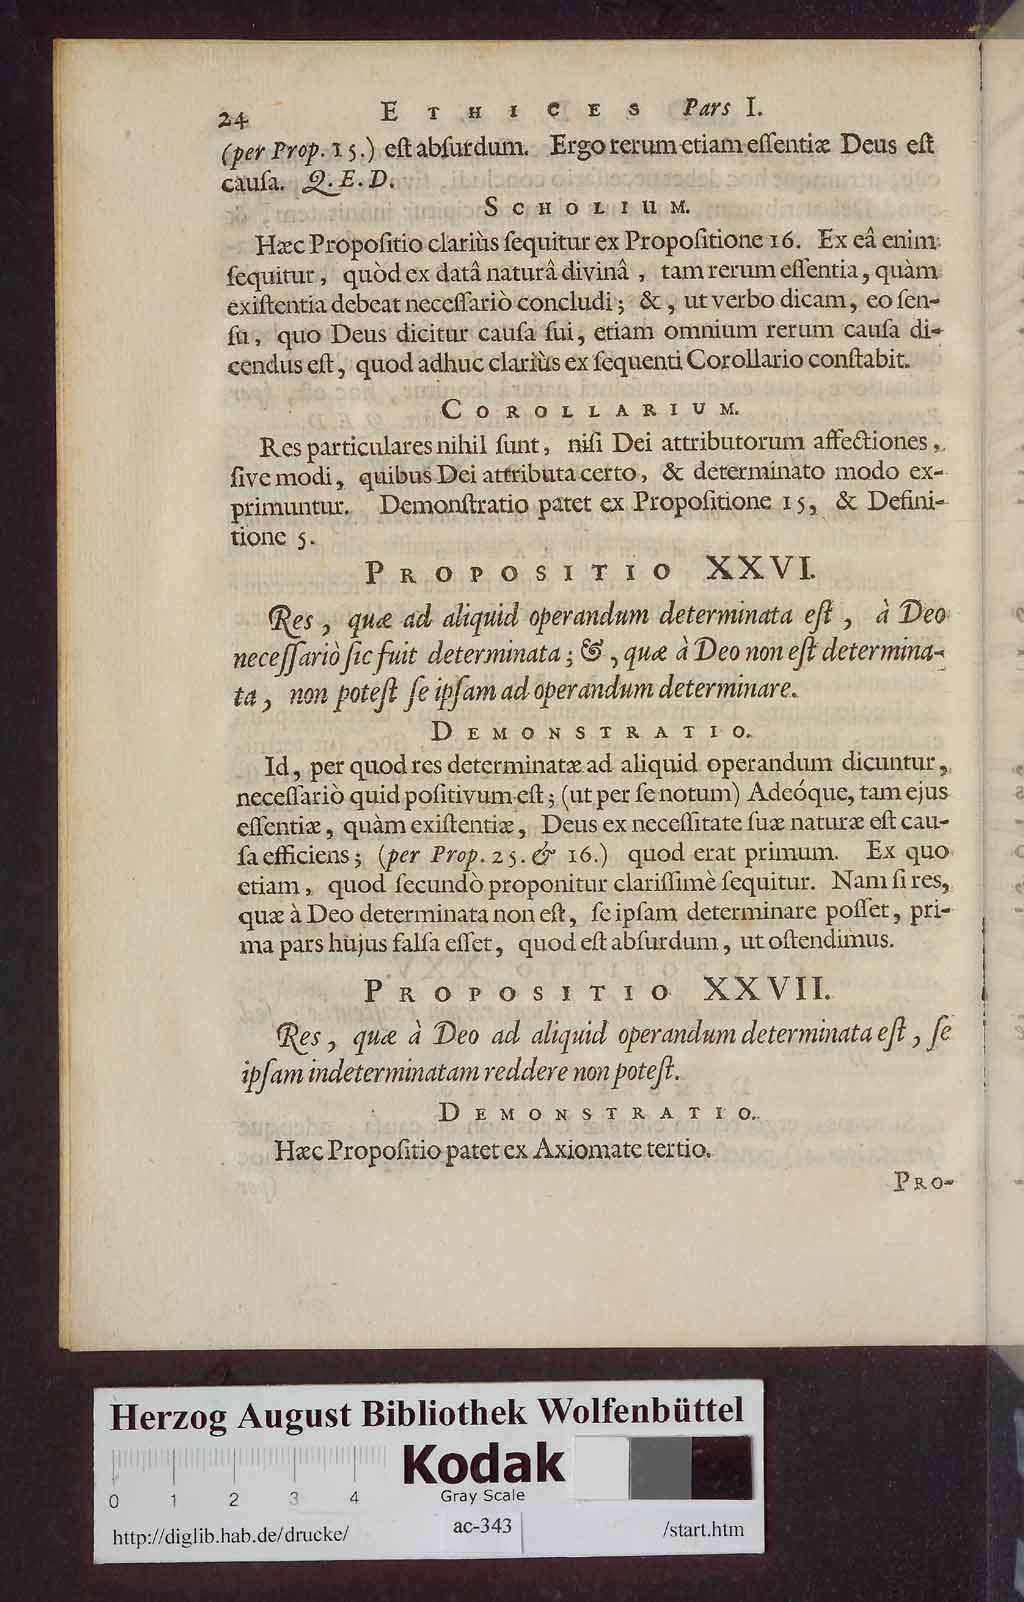 24 ETHICES Pars I.
(per Prop. 15.) eſt abſurdum. Ergo rerum etiam eſſentiæ Deus eſt
cauſa. Q.E.D.
SCHOLIUM.
Hæc Propoſitio clariùs ſequitur ex Propoſitione 16. Ex eâ enim
ſequitur, quòd ex datâ naturâ divinâ, tam rerum eſſentia, quàm
exiſtentia debeat neceſſariò concludi; &, ut verbo dicam, eo ſen-
ſu, quo Deus dicitur cauſa ſui, etiam omnium rerum cauſa di-
cendus eſt, quod adhuc clariùs ex ſequenti Corollario conſtabit.
COROLLARIUM.
Res particulares nihil ſunt, niſi Dei attributorum affectiones,
ſive modi, quibus Dei attributa certo, & determinato modo ex-
primuntur. Demonſtratio patet ex Propoſitione 15, & Defini-
tione 5.
PROPOSITIO XXVI.
Res, quæ ad aliquid operandum determinata eſt, à Deo
neceſſariò ſic fuit determinata; &, quæ à Deo non eſt determina-
ta, non poteſt ſe ipſam ad operandum determinare.
DEMONSTRATIO.
Id, per quod res determinatæ ad aliquid operandum dicuntur,
neceſſariò quid poſitivum eſt; (ut per ſe notum) Adeóque, tam ejus
eſſentiæ, quàm exiſtentiæ, Deus ex neceſſitate ſuæ naturæ eſt cau-
ſa efficiens; (per Prop. 25. & 16.) quod erat primum. Ex quo
etiam, quod ſecundò proponitur clariſſimè ſequitur. Nam ſi res,
quæ à Deo determinata non eſt, ſe ipſam determinare poſſet, pri-
ma pars hujus falſa eſſet, quod eſt abſurdum, ut oſtendimus.
PROPOSITIO XXVII.
Res, quæ à Deo ad aliquid operandum determinata eſt, ſe
ipſam indeterminatam reddere non poteſt.
DEMONSTRATIO.
Hæc Propoſitio patet ex Axiomate tertio.
PRO-
Herzog August Bibliothek Wolfenbüttel
Kodak
0 1 2 3 4 Gray Scale
http://diglib.hab.de/drucke/ ac-343 /start.htm